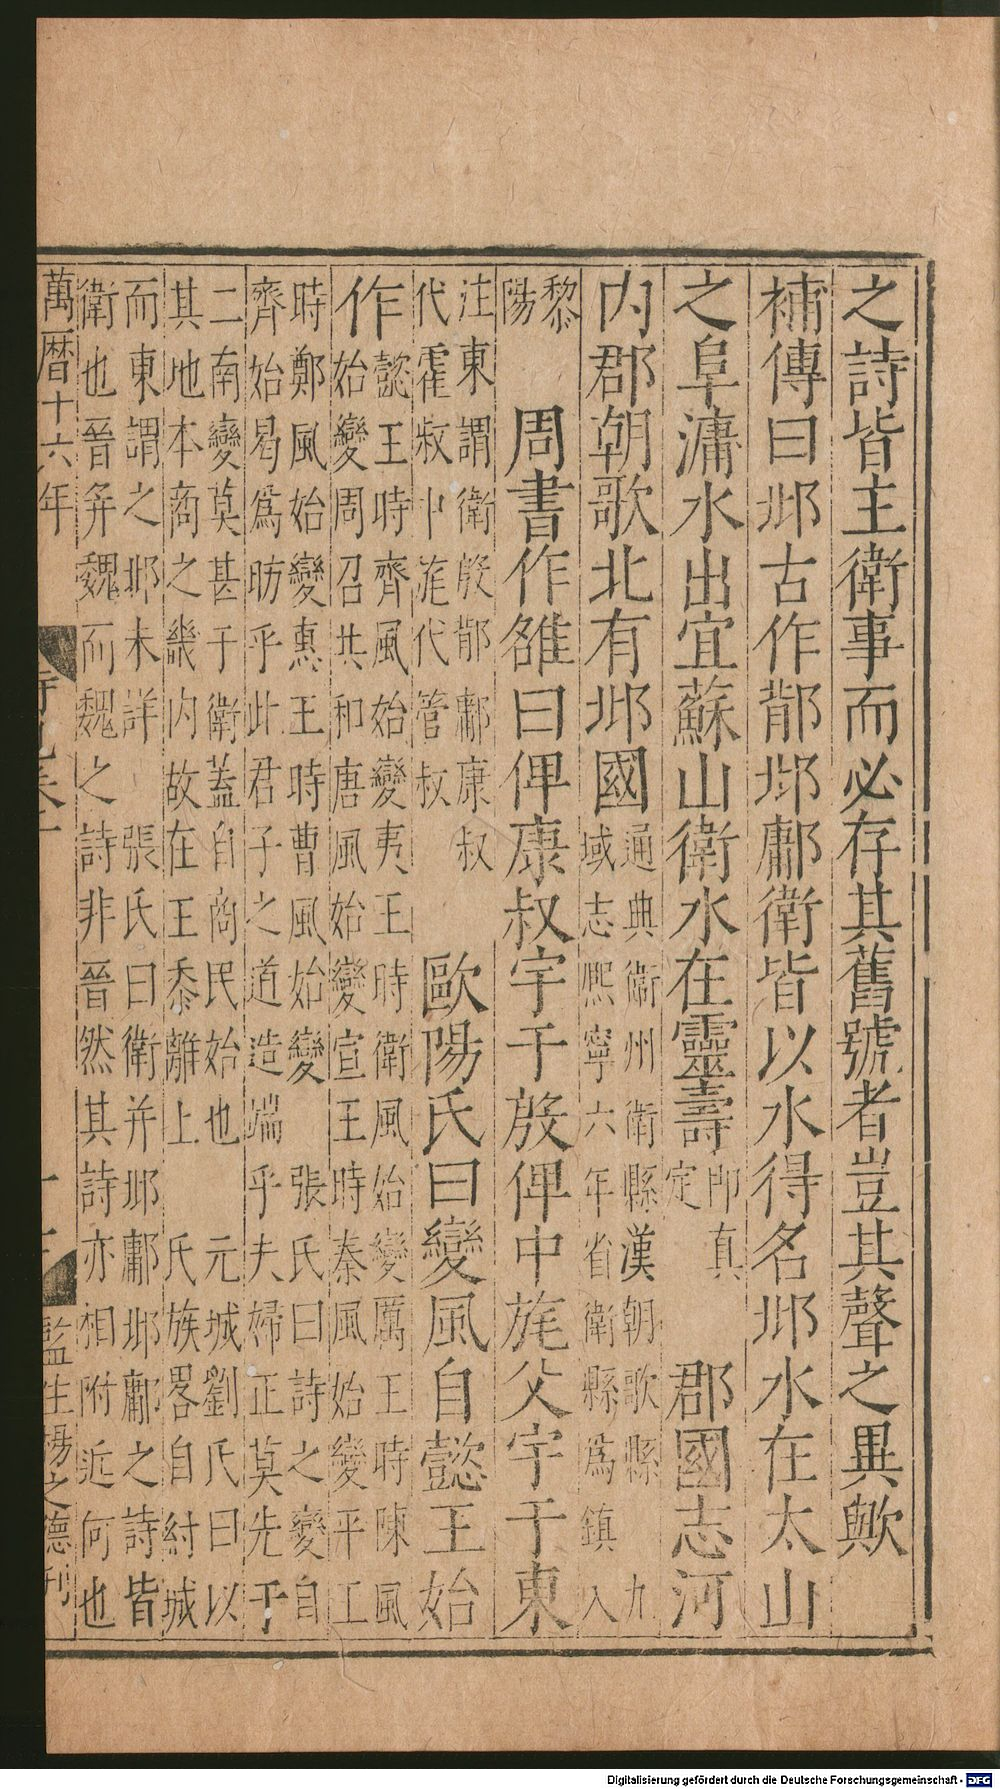 之詩皆主衛事而必存其舊號者豈其聲之異歟
補傳曰邶古作鄁邶鄘衛皆以水得名邶水在太山
之阜滽水出宜蘇山衛水在靈壽即真定　郡國志河
内郡朝歌北有邶國通典衛州衛縣漢朝歌縣九域志熈寧六年省衛縣為鎮入
黎陽　周書作雒曰俾康叔宇于殷俾中旄父宇于東
注東謂衛殷鄁鄘康叔代霍叔中旄代管叔　歐陽氏曰變風自懿王始
作懿王時齊風始變夷王時衛風始變厲王時陳風始變周召共和唐風始變宣王時秦風始變平王
時鄭風始變惠王時曹風始變　張氏曰詩之變自齊始曷為昉乎此君子之道造端乎夫婦正莫先于
二南變莫甚于衛蓋自商民始也　元城劉氏曰以其地本商之畿内故在王黍離上　氏族畧自紂城
而東謂之邶未詳　張氏曰衛并邶鄘邶鄘之詩皆衛也晉并魏而魏之詩非晉然其詩亦相附近何也
萬曆十六年
監生楊之德刊
Digitalisierung gefördert durch die Deutsche Forschungsgemeinschaft - DFG